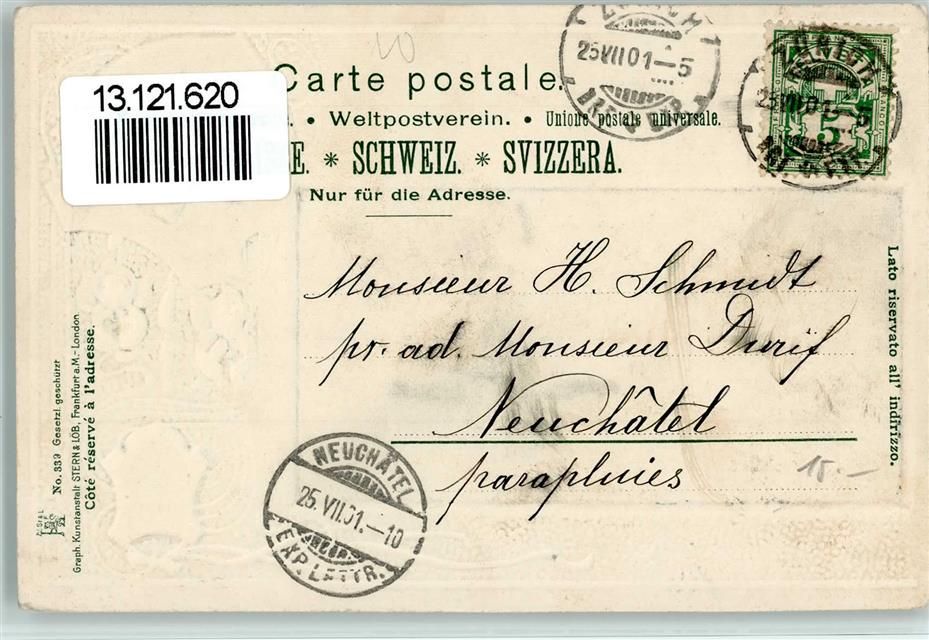 13.121.620
Carte postale.
• Weltpostverein. • Union postale universelle.
E. * SCHWEIZ. * SVIZZERA.
Nur für die Adresse.
25 VII 01 – 5
Monsieur H. Schmidt
pr. ad. Monsieur Durif
Neuchâtel
parapluies
15.–
Lato riservato all' indirizzo.
Côté réservé à l'adresse.
No. 339 Gesetzl. geschützt
Graph. Kunstanstalt STERN & LÖB, Frankfurt a.M.- London
NEUCHÂTEL
25. VII. 01. – 10
EXP. LETTR.